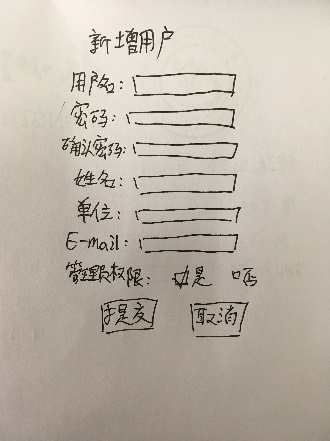 新增用户
用户名:
密码:
确认密码:
姓名:
单位:
E-mail:
管理员权限: 是 否
提交 取消